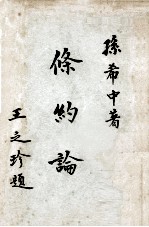 孫希中著
條約論
王之珍題